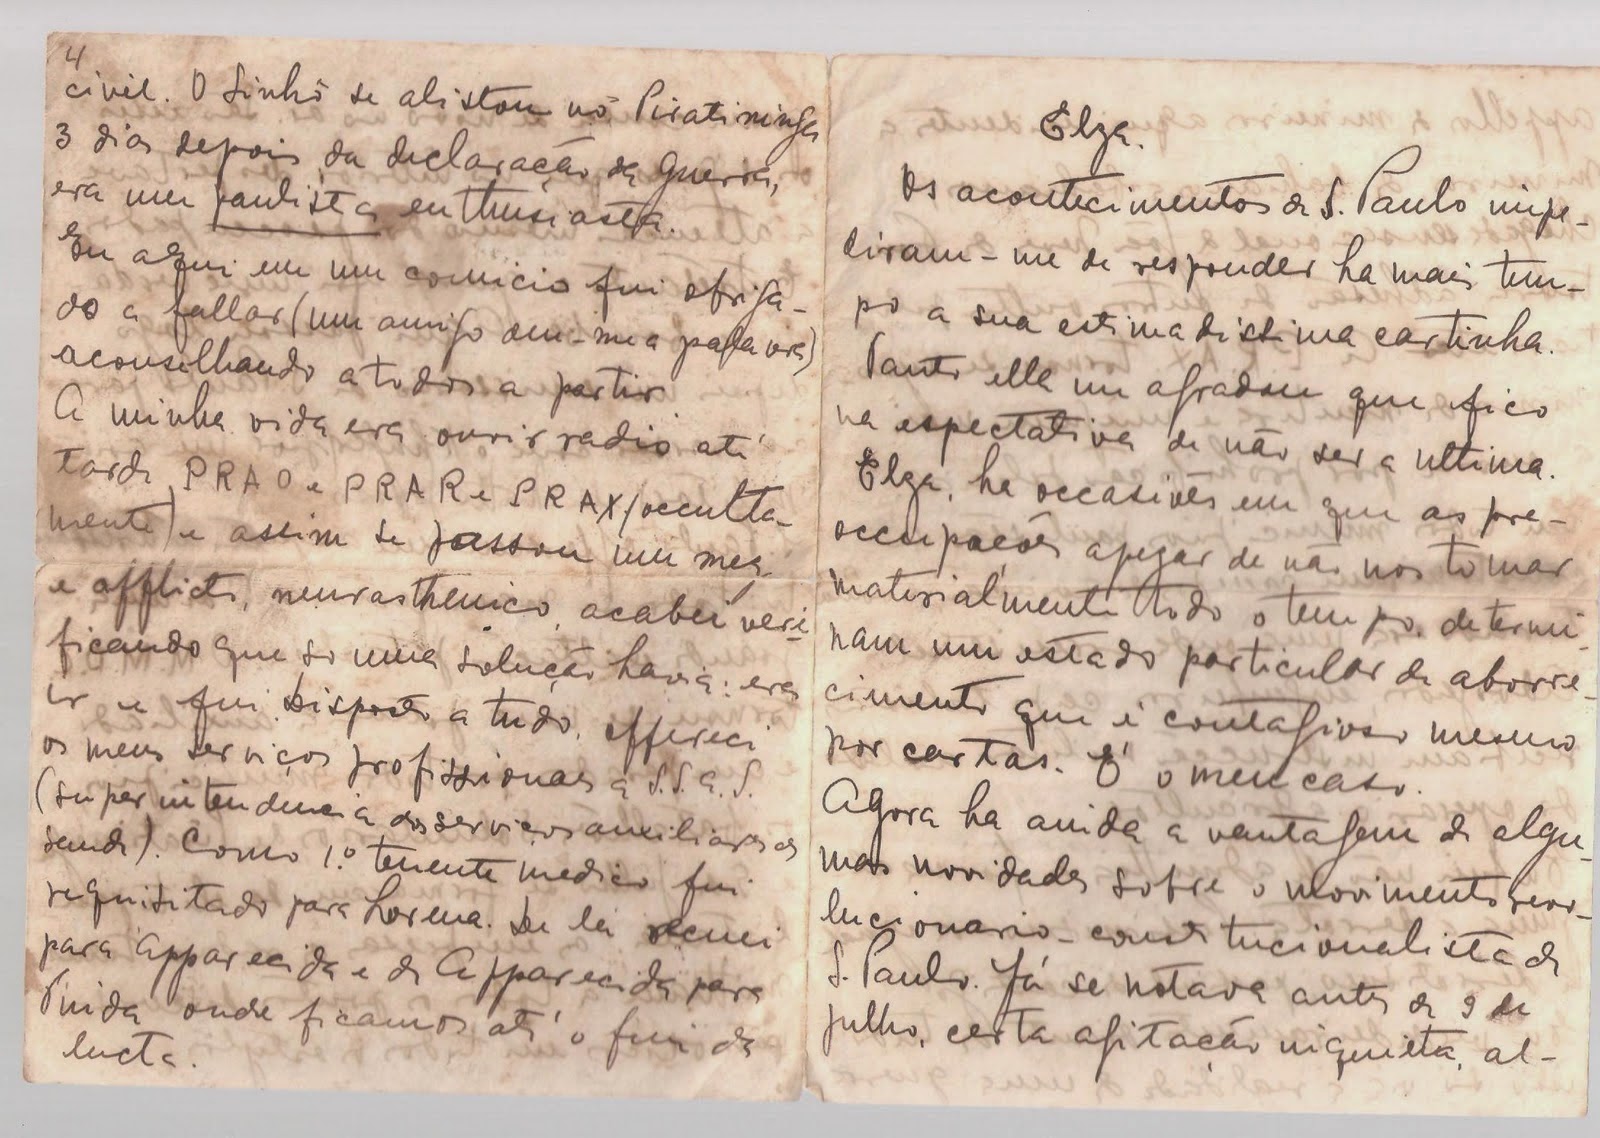 4
civil. O Sinhô se alistou nô Piratininga
3 dias depois da declaração da guerra,
era um paulista enthusiasta.
Eu aqui em um comicio fui obriga-
do a fallar (um amigo deu-me a palavra)
aconselhando a todos a partir
A minha vida era ouvir radio até
tarde PRAO e PRAR e PRAX (occulta-
mente) e assim se passou um mez,
e afflicto, neurasthenico, acabei veri-
ficando que so uma solução havia: era
ir e fui. Disposto a tudo, offereci
os meus serviços profissionaes a S.S.a.S.
(superintendencia dos serviços auxiliares de
saude). Como 1.º tenente medico fui
requisitado para Lorena. De lá recuei
para Apparecida e de Apparecida para
onde ficamos até o fim da
lucta.
Elza.
Os acontecimentos de S. Paulo impe-
diram-me de responder ha mais tem-
po a sua estimadissima cartinha.
Tanto ella me agradou que fico
na espectativa de não ser a ultima.
Elza, ha occasiões em que as pre-
occupações apezar de não nos tomar
materialmente todo o tempo, determi-
nam um estado particular de aborre-
cimento que é contagioso mesmo
por cartas. É o meu caso.
Agora ha ainda a vantagem de algu-
mas novidades sobre o movimento revo-
lucionario-constitucionalista de
S. Paulo. Já se notava antes de 9 de
julho, certa agitação inquieta, al-